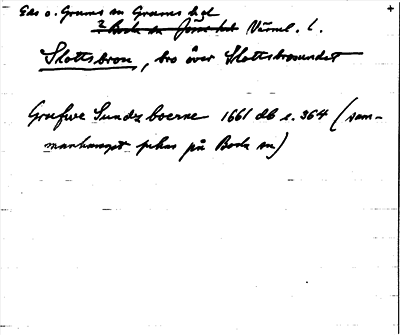 Eds o. Grums sn Grums hd
? Borh sn Jösse hd Värml. l.
Slottsbron, bro över Slottsbrosundet
Grufwe Sundz boerne 1661 db s. 364 (sam-
manhanget pekar på Borh sn)